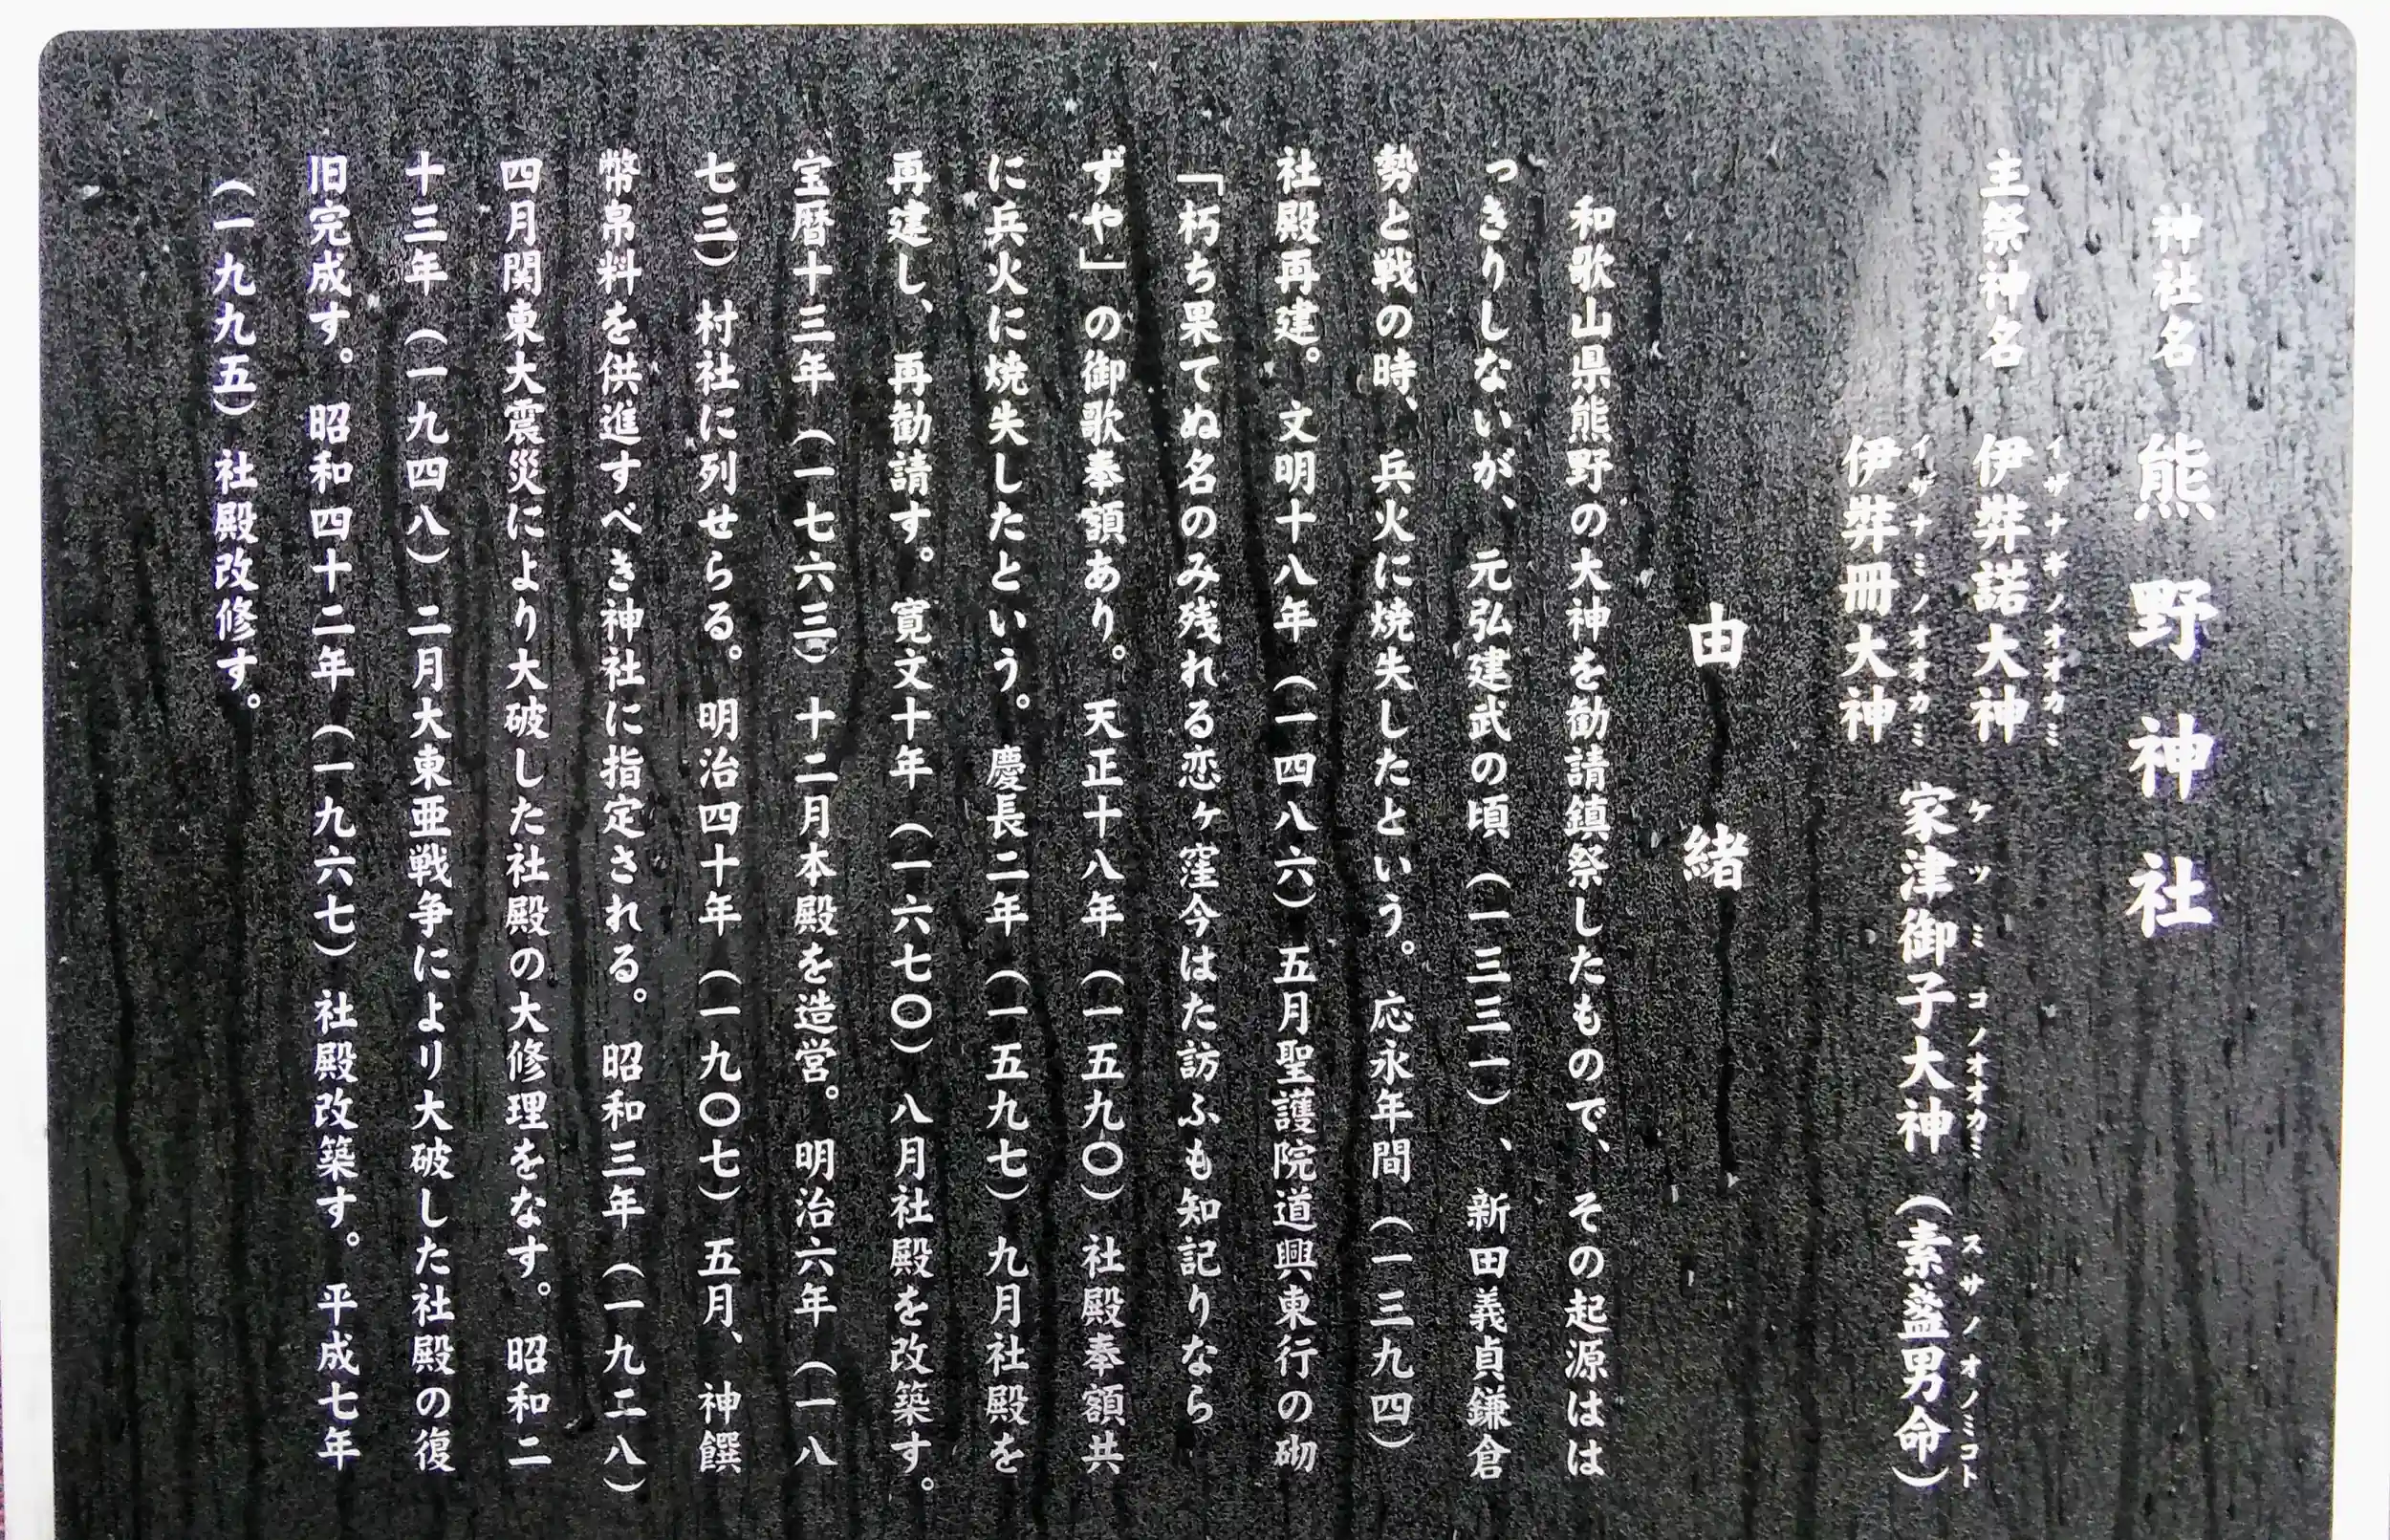 神社名　熊野神社
主祭神名　伊弉諾大神
イザナギノオオカミ
伊弉冊大神
イザナミノオオカミ
家津御子大神（素盞男命）
ケツミコノオオカミ　スサノオノミコト
由緒
和歌山県熊野の大神を勧請鎮祭したもので、その起源はは
っきりしないが、元弘建武の頃（一三三一）、新田義貞鎌倉
勢と戦の時、兵火に焼失したという。応永年間（一三九四）
社殿再建。文明十八年（一四八六）五月聖護院道興東行の砌
「朽ち果てぬ名のみ残れる恋ヶ窪今はた訪ふも知記りなら
ずや」の御歌奉額あり。天正十八年（一五九〇）社殿奉額共
に兵火に焼失したという。慶長二年（一五九七）九月社殿を
再建し、再勧請す。寛文十年（一六七〇）八月社殿を改築す。
宝暦十三年（一七六三）十二月本殿を造営。明治六年（一八
七三）村社に列せらる。明治四十年（一九〇七）五月、神饌
幣帛料を供進すべき神社に指定される。昭和三年（一九二八）
四月関東大震災により大破した社殿の大修理をなす。昭和二
十三年（一九四八）二月大東亜戦争により大破した社殿の復
旧完成す。昭和四十二年（一九六七）社殿改築す。平成七年
（一九九五）社殿改修す。